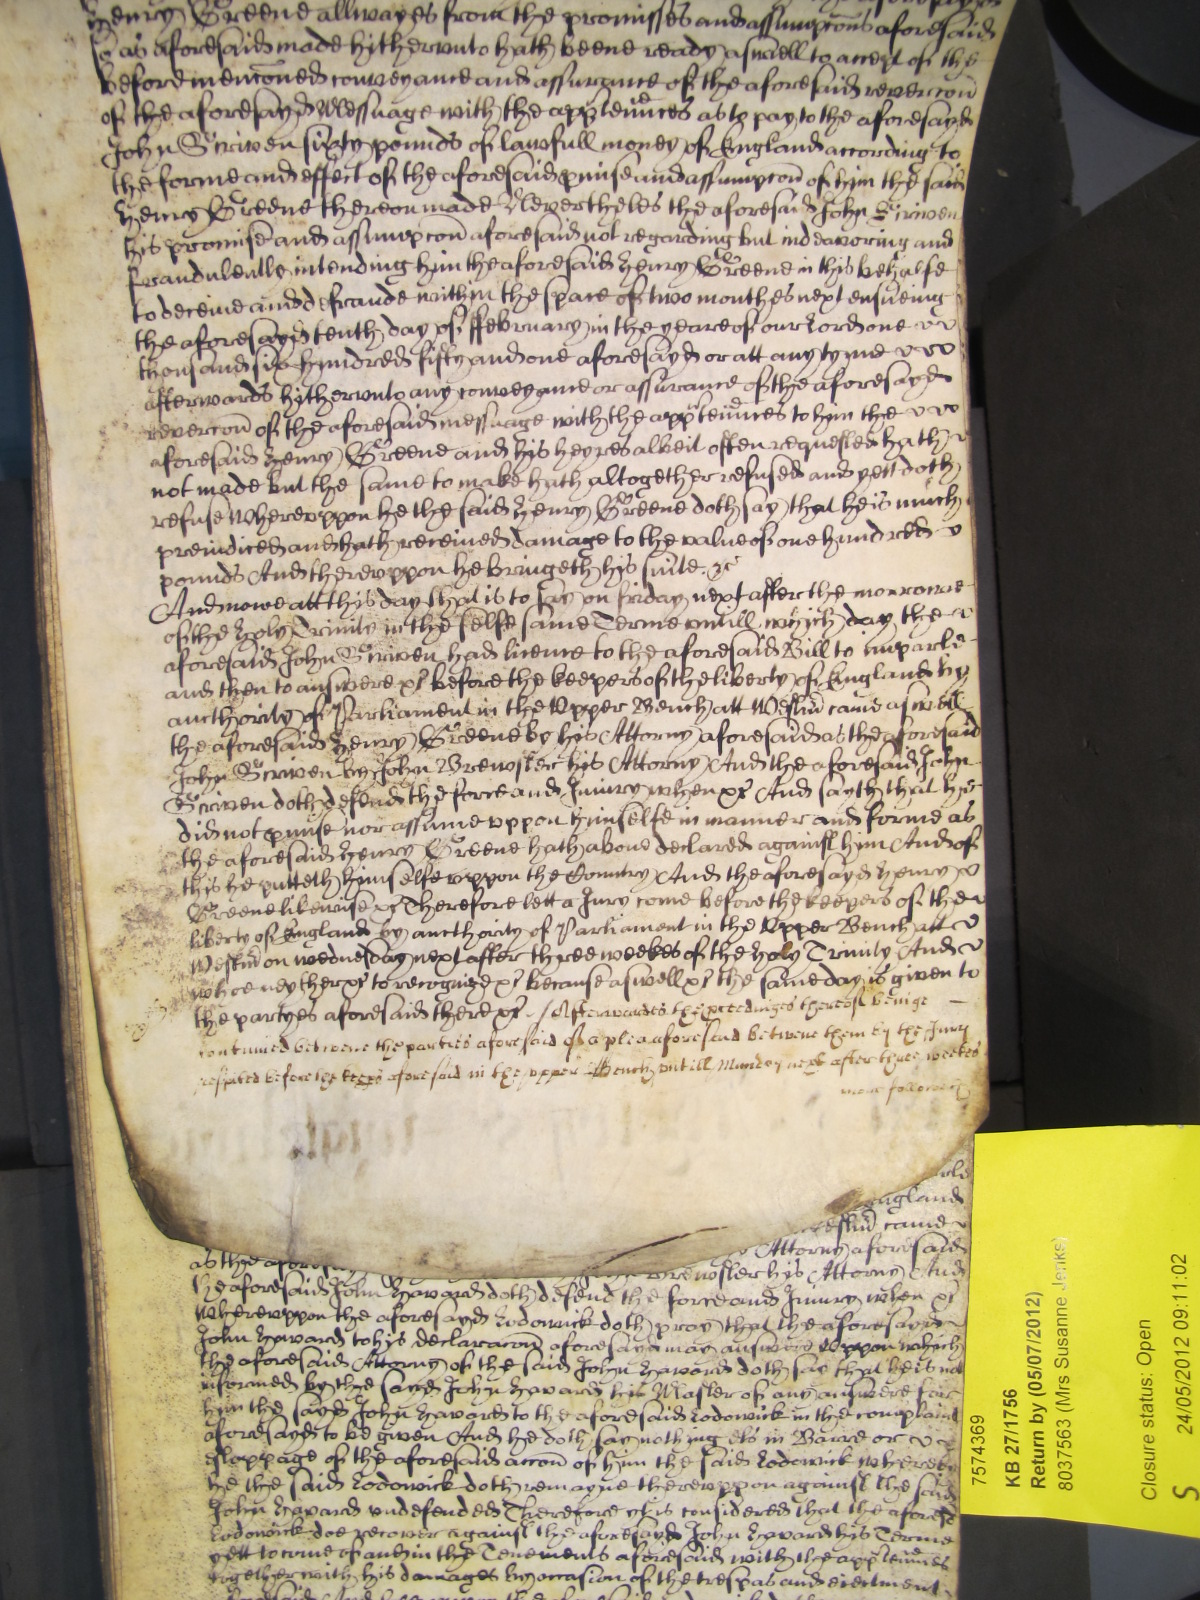 Henry Greene allwayes from the promisses and assumpcons aforesaid
as aforesaid made hitherunto hath beene ready aswell to accept of the
before menconed conveyance and assurance of the aforesaid revercon
of the aforesayd Messuage with the apptennces as to pay to the aforesayd
John Scriven sixty pounds of lawfull money of England according to
the forme and effect of the aforesaid pmise and assumpcon of him the said
Henry Greene thereon made Neverthelesse the aforesaid John Scriven
his promise and assumpcon aforesaid not regarding but indeavoring and
fraudulently intending him the aforesaid Henry Greene in this behalfe
to deceive and defraude within the space of two monthes next ensueing
the aforesayd tenth day of ffebruary in the yeare of our Lord one
thousand six hundred fifty and one aforesayd or att any tyme
afterwards hitherunto any conveyance or assurance of the aforesayd
revercon of the aforesaid messuage with the apptennces to him the
aforesaid Henry Greene and his heyres albeit often requested hath
not made but the same to make hath altogether refused and yett doth
refuse Whereuppon he the said Henry Greene doth say that he is much
preiudiced and hath received damage to the value of one hundred
pounds And thereuppon he bringeth his suite &c
And nowe att this day that is to say on friday next after the morrowe
of the holy Trinity in the selfe same Terme untill which day the
aforesaid John Scriven had licence to the aforesaid Bill to imparle
and then to answere &c before the keepers of the liberty of England by
aucthority of Parliament in the Upper Bench att Westmr came aswell
the aforesaid Henry Greene by his Attorny aforesaid as the aforesaid
John Scriven by John Brewster his Attorny And the aforesaid John
Scriven doth defend the force and Iniury when &c And sayth that he
did not pmise nor assume uppon himselfe in manner and forme as
the aforesaid Henry Greene hath above declared against him And of
this he putteth himselfe uppon the Country And the aforesayd Henry
Greene likewise &c Therefore lett a Jury come before the keepers of the
liberty of England by aucthority of Parliament in the Upper Bench att
Westmr on wednesday next after three weekes of the holy Trinity And
whoe neyther &c to recognize &c because aswell &c the same day is given to
the partyes aforesaid there &c / Afterwardes the pceedinges thereof beinge
continued betweene the parties aforesaid of a plea aforesaid betweene them by the Jury
respited before the keeps aforesaid in the upper Bench untill Munday next after three weekes
more followeth
England
Westmr came
as the Attorny aforesaid
Brewster his Attorny And
the aforesaid John Haward doth defend the force and Iniury when &c
Whereuppon the aforesayd Lodowick doth pray that the aforesayd
John Haward to his declaracon aforesayd may answere Uppon which
the aforesaid Attorny of the said John Haward doth say that he is not
informed by the sayd John Haward his Master of any answere for
him the sayd John Haward to the aforesaid Lodowick in the complaint
aforesayd to be given And he doth say nothing els in Barre or
estoppage of the aforesaid accon of him the said Lodowick whereby
he the said Lodowick doth remayne thereuppon against the said
John Haward undefended Therefore it is considered that the aforesd
Lodowick doe recover against the aforesayd John Haward his Terme
yett to come of and in the Tenements aforesaid with the apptennces
together with his damages by occasion of the trespas and eiectment
7574369
KB 27/1756
Return by (05/07/2012)
8037563 (Mrs Susanne Jenks)
Closure status: Open
24/05/2012 09:11:02
S